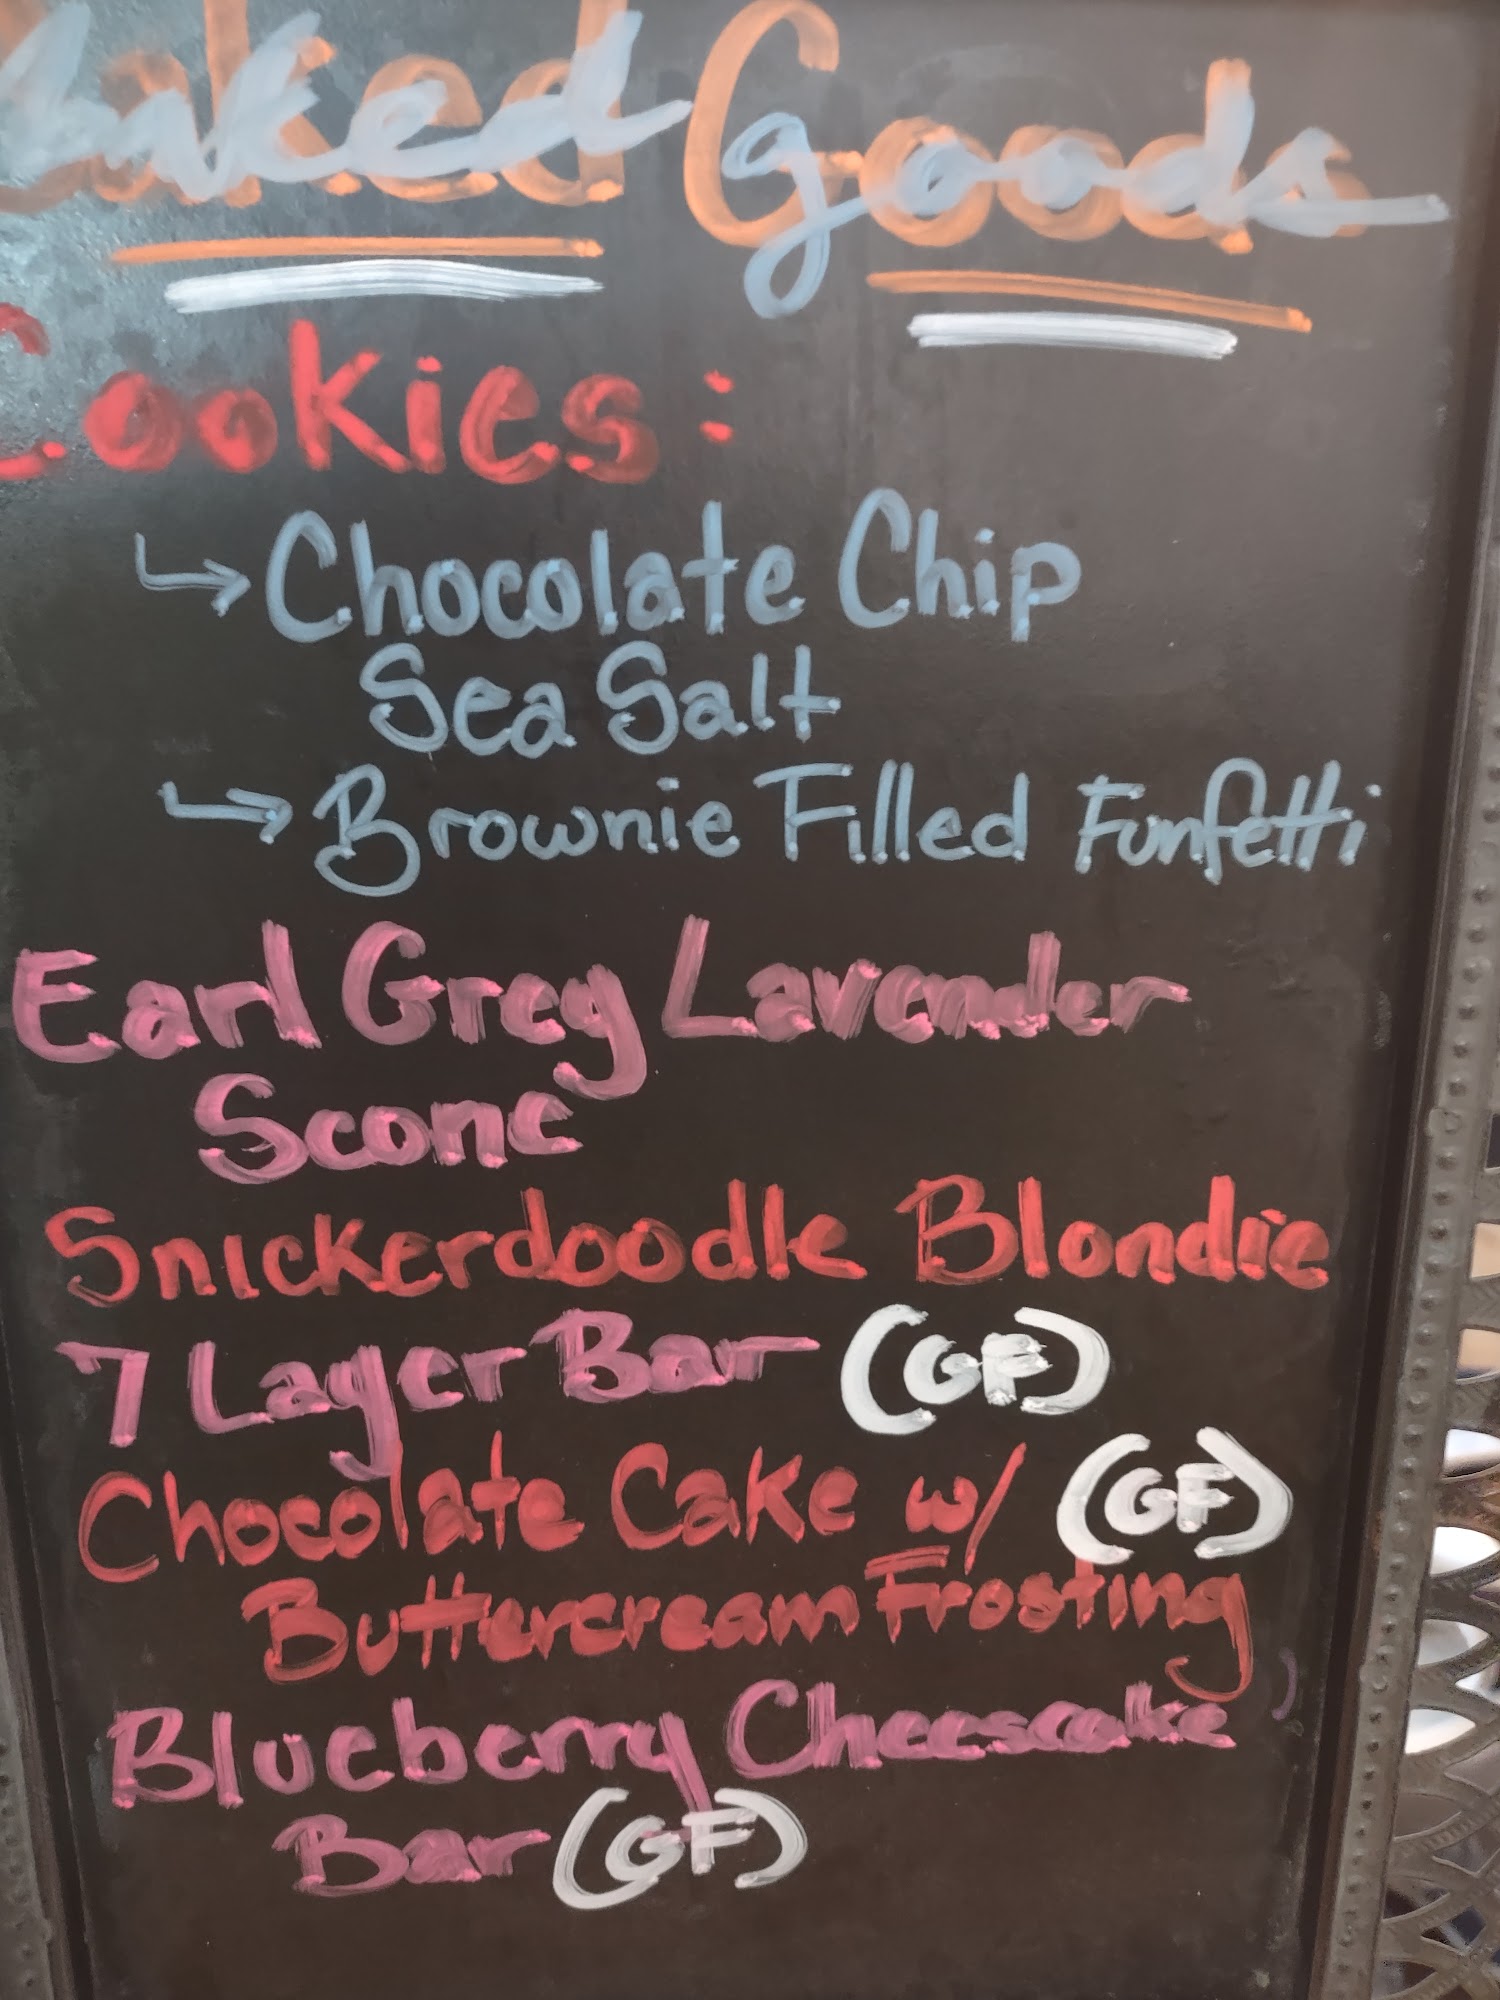 Baked Goods
Cookies:
↳ Chocolate Chip
Sea Salt
↳ Brownie Filled Funfetti
Earl Grey Lavender
Scone
Snickerdoodle Blondie
7 Layer Bar (GF)
Chocolate Cake w/ (GF)
Buttercream Frosting
Blueberry Cheesecake
Bar (GF)